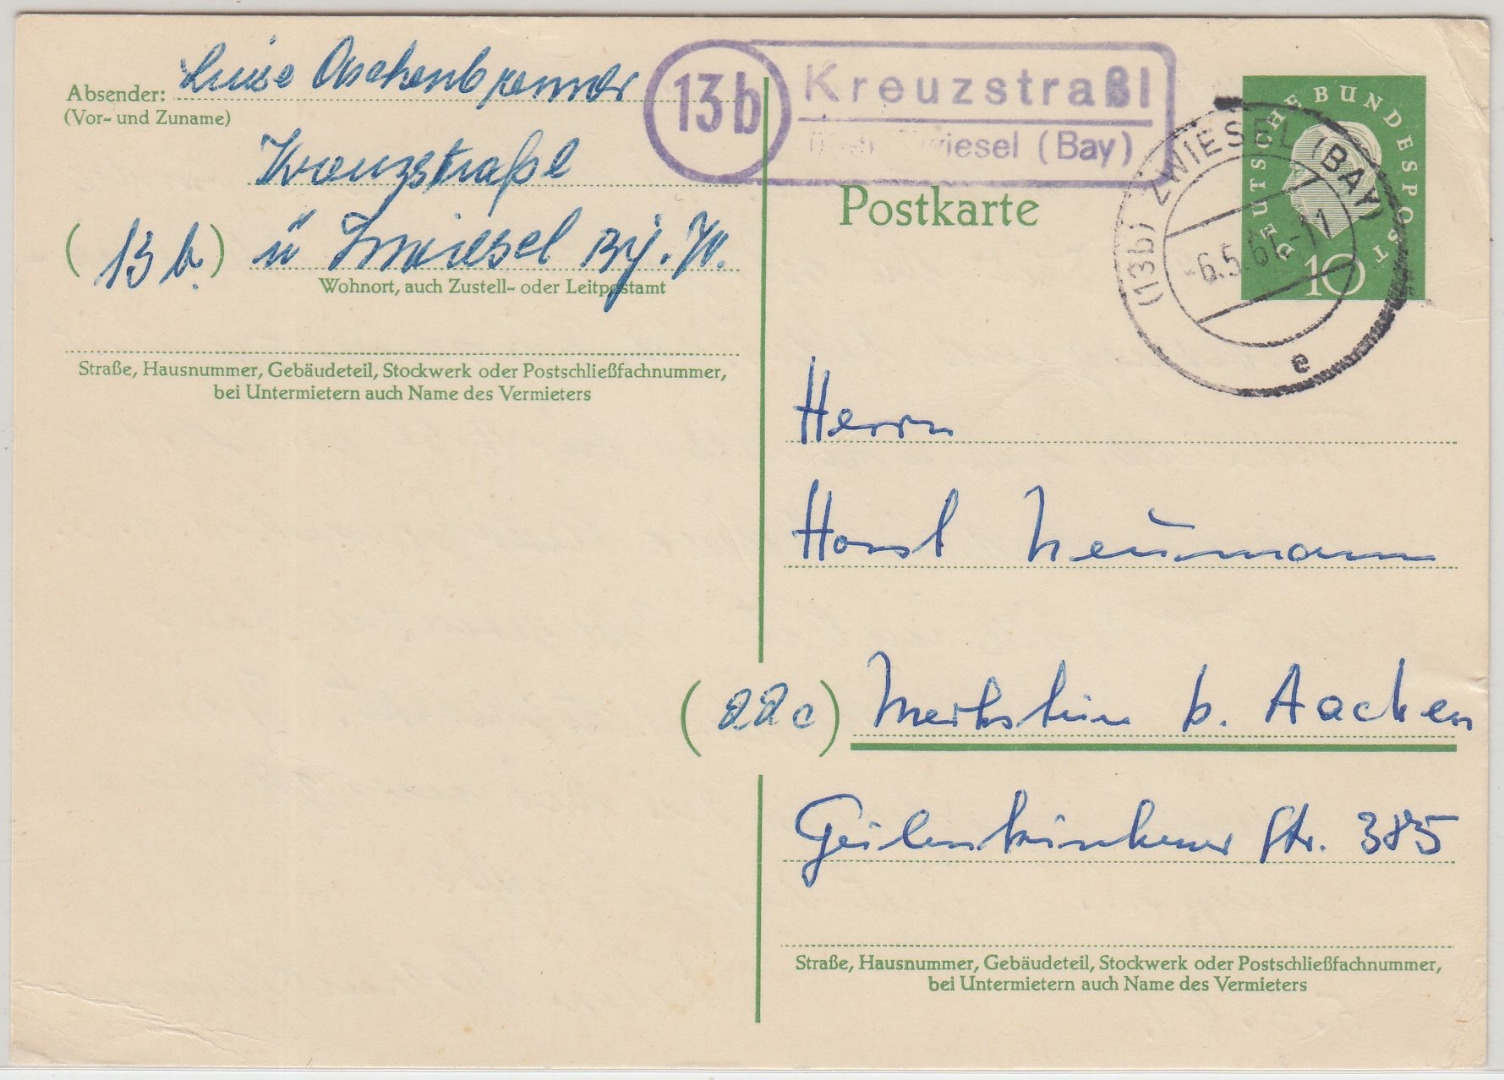 Absender: Luise Aschenbrenner
(Vor- und Zuname)
Kreuzstraßl
(13 b.) ü Zwiesel By. W.
Wohnort, auch Zustell- oder Leitpostamt
Straße, Hausnummer, Gebäudeteil, Stockwerk oder Postschließfachnummer,
bei Untermietern auch Name des Vermieters
13b Kreuzstraßl
über Zwiesel (Bay)
Postkarte
DEUTSCHE BUNDESPOST
10
(13b) ZWIESEL (BAY)
-6.5.61.-11
e
Herrn
Horst Neumann
(22c) Merkstein b. Aachen
Geilenkirchener Str. 385
Straße, Hausnummer, Gebäudeteil, Stockwerk oder Postschließfachnummer,
bei Untermietern auch Name des Vermieters